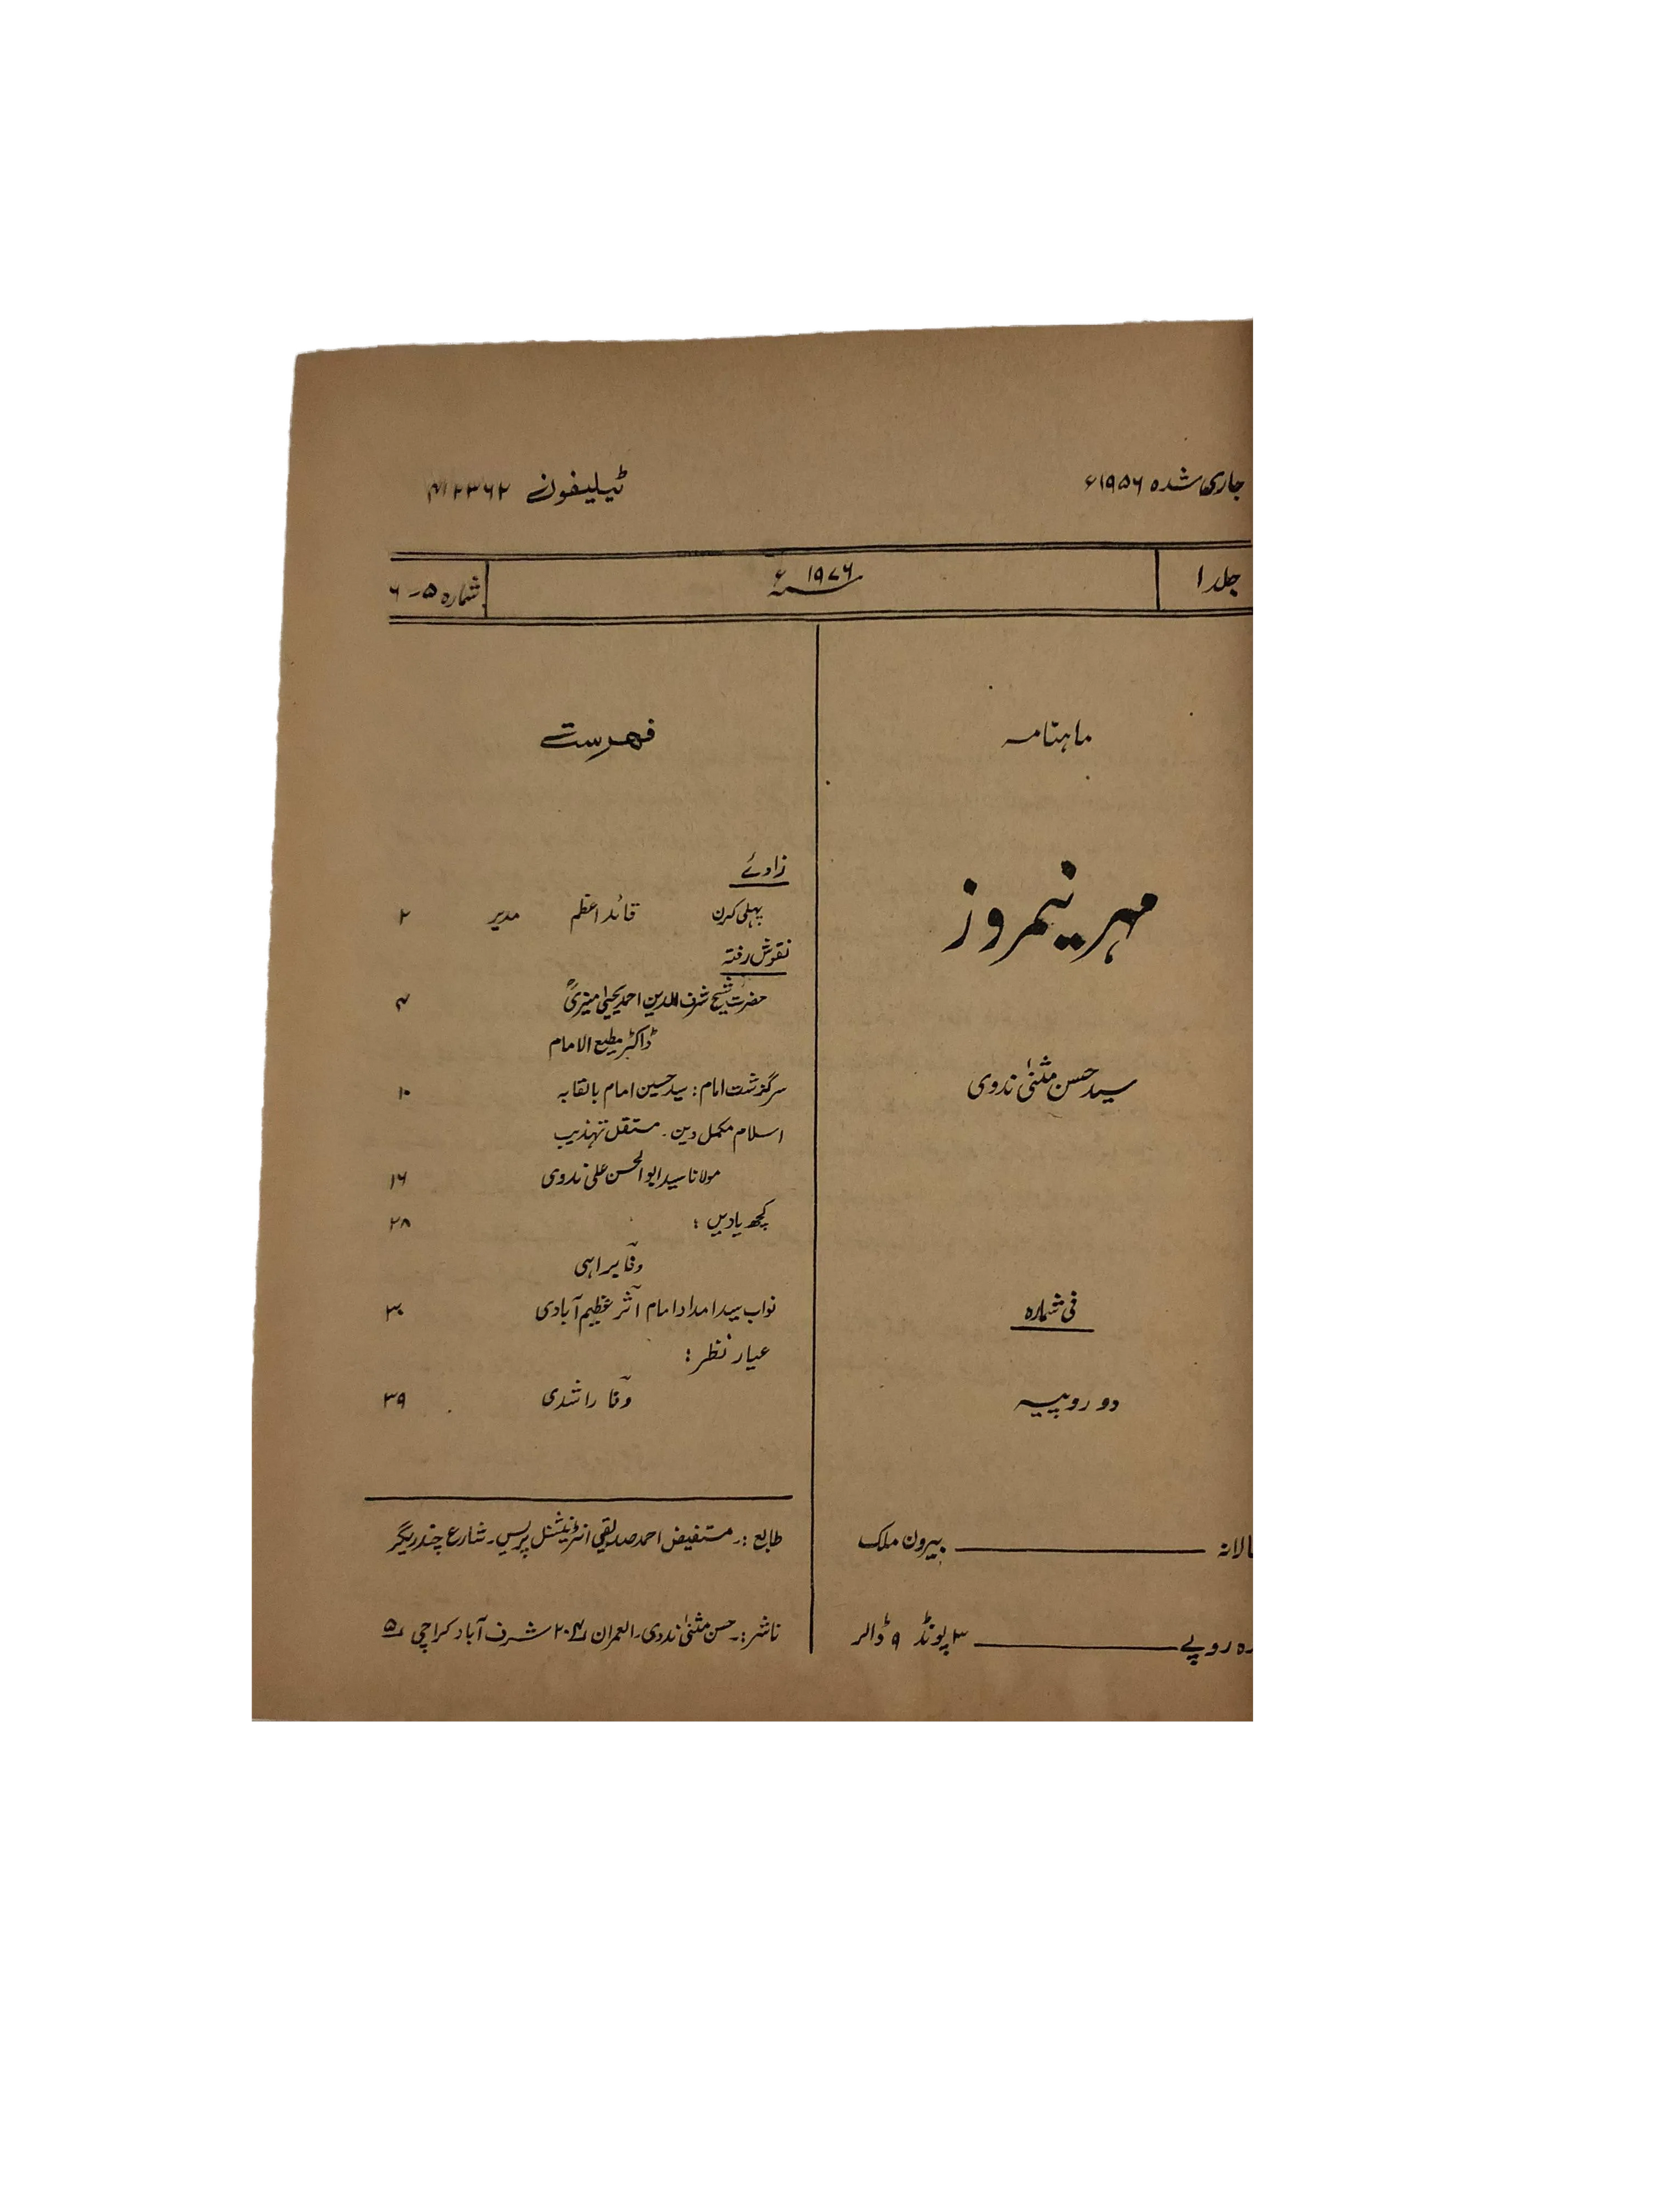 جاری شدہ ۱۹۵۶ء
ٹیلیفون ۴۱۲۳۶۲
جلد ۱
۱۹۷۶ء
شمارہ ۵-۶
ماہنامہ
مہر نیمروز
سید حسن مثنیٰ ندوی
فی شمارہ
دو روپیہ
بیرون ملک
روپے ۳ پونڈ ۹ ڈالر
فہرست
زاویے
پہلی کرن قائد اعظم مدیر ۲
نقوش رفتہ
حضرت شیخ شرف الدین احمد یحییٰ منیریؒ ۴
ڈاکٹر مطیع الامام
سرگزشت امام: سید حسین امام بالقابہ ۱۰
اسلام مکمل دین۔ مستقل تہذیب
مولانا سید ابوالحسن علی ندوی ۱۶
کچھ یادیں: ۲۸
وفا براہی
نواب سید امداد امام اثر عظیم آبادی ۳۰
عیار نظر:
وفا راشدی ۳۹
طابع :۔ مستفیض احمد صدیقی انٹرنیشنل پریس۔ شارع چندریگر
ناشر :۔ حسن مثنیٰ ندوی۔ العمران ۲۰۴ شرف آباد کراچی ۵